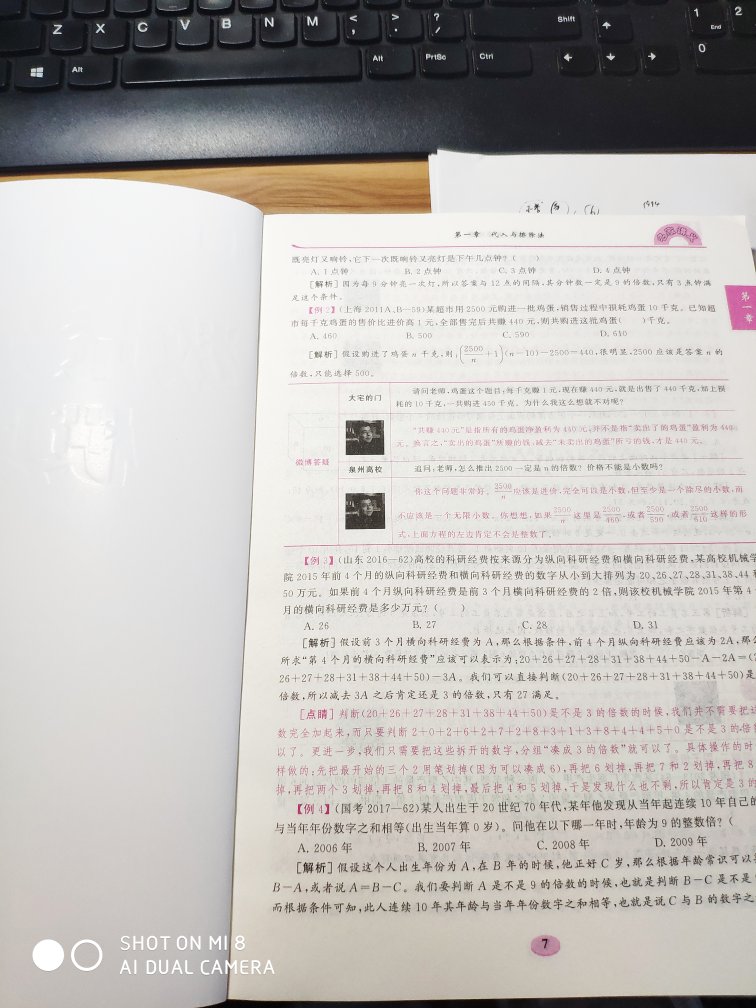 Z X C V B N M < , > . ? / Shift ↑ 1 End 2
Alt Alt PrtSc Ctrl ← ↓ → 0
第一章 代入与排除法
第一章
既亮灯又响铃,它下一次既响铃又亮灯是下午几点钟?( )
A. 1点钟 B. 2点钟 C. 3点钟 D. 4点钟
[解析] 因为每9分钟亮一次灯,所以答案与12点的间隔,其分钟数一定是9的倍数,只有3点钟满
足这个条件。
【例2】(上海2011A、B—59)某超市用2500元购进一批鸡蛋,销售过程中损耗鸡蛋10千克。已知超
市每千克鸡蛋的售价比进价高1元,全部售完后共赚440元,则共购进这批鸡蛋( )千克。
A. 460 B. 500 C. 590 D. 610
[解析] 假设购进了鸡蛋n千克,则:(2500/n+1)(n-10)-2500=440,很明显,2500应该是答案n的
倍数,只能选择500。
微博答疑
大宅的门
请问老师,鸡蛋这个题目:每千克赚1元,现在赚440元,就是出售了440千克,加上损
耗的10千克,一共购进450千克。为什么我这么想就不对呢?
“共赚440元”是指所有的鸡蛋净盈利为440元,并不是指“卖出了的鸡蛋”盈利为440
元。换言之,“卖出的鸡蛋”所赚的钱,减去“未卖出的鸡蛋”所亏的钱,才是440元。
泉州高校
追问:老师,怎么推出2500一定是n的倍数?价格不能是小数吗?
你这个问题非常好。2500/n应该是进价,完全可以是小数,但至少是一个除尽的小数,而
不应该是一个无限小数。你想想,如果2500/n这里是2500/460,或者2500/590,或者2500/610这样的形
式,上面方程的左边肯定不会是整数了。
【例3】(山东2016—62)高校的科研经费按来源分为纵向科研经费和横向科研经费,某高校机械学
院2015年前4个月的纵向科研经费和横向科研经费的数字从小到大排列为20、26、27、28、31、38、44
50万元。如果前4个月纵向科研经费是前3个月横向科研经费的2倍,则该校机械学院2015年第4
月的横向科研经费是多少万元?( )
A. 26 B. 27 C. 28 D. 31
[解析] 假设前3个月横向科研经费为A,那么根据条件,前4个月纵向科研经费应该为2A,那么
所求“第4个月的横向科研经费”应该可以表示为:20+26+27+28+31+38+44+50-A-2A=(
26+27+28+31+38+44+50)-3A。我们可以直接判断(20+26+27+28+31+38+44+50)是
倍数,所以减去3A之后肯定还是3的倍数,只有27满足。
[点睛] 判断(20+26+27+28+31+38+44+50)是不是3的倍数的时候,我们并不需要把这
数完全加起来,而只要判断2+0+2+6+2+7+2+8+3+1+3+8+4+4+5+0是不是3的倍
以了。更进一步,我们只需要把这些拆开的数字,分组“凑成3的倍数”就可以了。具体操作的时
样做的:先把最开始的三个2用笔划掉(因为可以凑成6),再把6划掉,再把7和2划掉,再把8
掉,再把两个3划掉,再把8和4划掉,最后把4和5划掉,于是发现什么也不剩,所以肯定是3的
【例4】(国考2017—62)某人出生于20世纪70年代,某年他发现从当年起连续10年自己的
与当年年份数字之和相等(出生当年算0岁)。问他在以下哪一年时,年龄为9的整数倍?(
A. 2006年 B. 2007年 C. 2008年 D. 2009年
[解析] 假设这个人出生年份为A,在B年的时候,他正好C岁,那么根据年龄常识可以
B-A,或者说A=B-C。我们要判断A是不是9的倍数的时候,也就是判断B-C是不是
而根据条件可知,此人连续10年其年龄与当年年份数字之和相等,也就是说C与B的数字之
7
SHOT ON MI 8
AI DUAL CAMERA